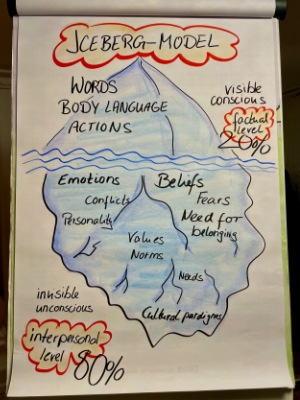 JCEBERG-MODEL
WORDS
BODY LANGUAGE
ACTIONS
visible
conscious
factual
level
20%
Emotions
Beliefs
Conflicts
Fears
Personality
Need for
belonging
Values
Norms
Needs
Cultural paradigms
invisible
unconscious
interpersonal
level
80%